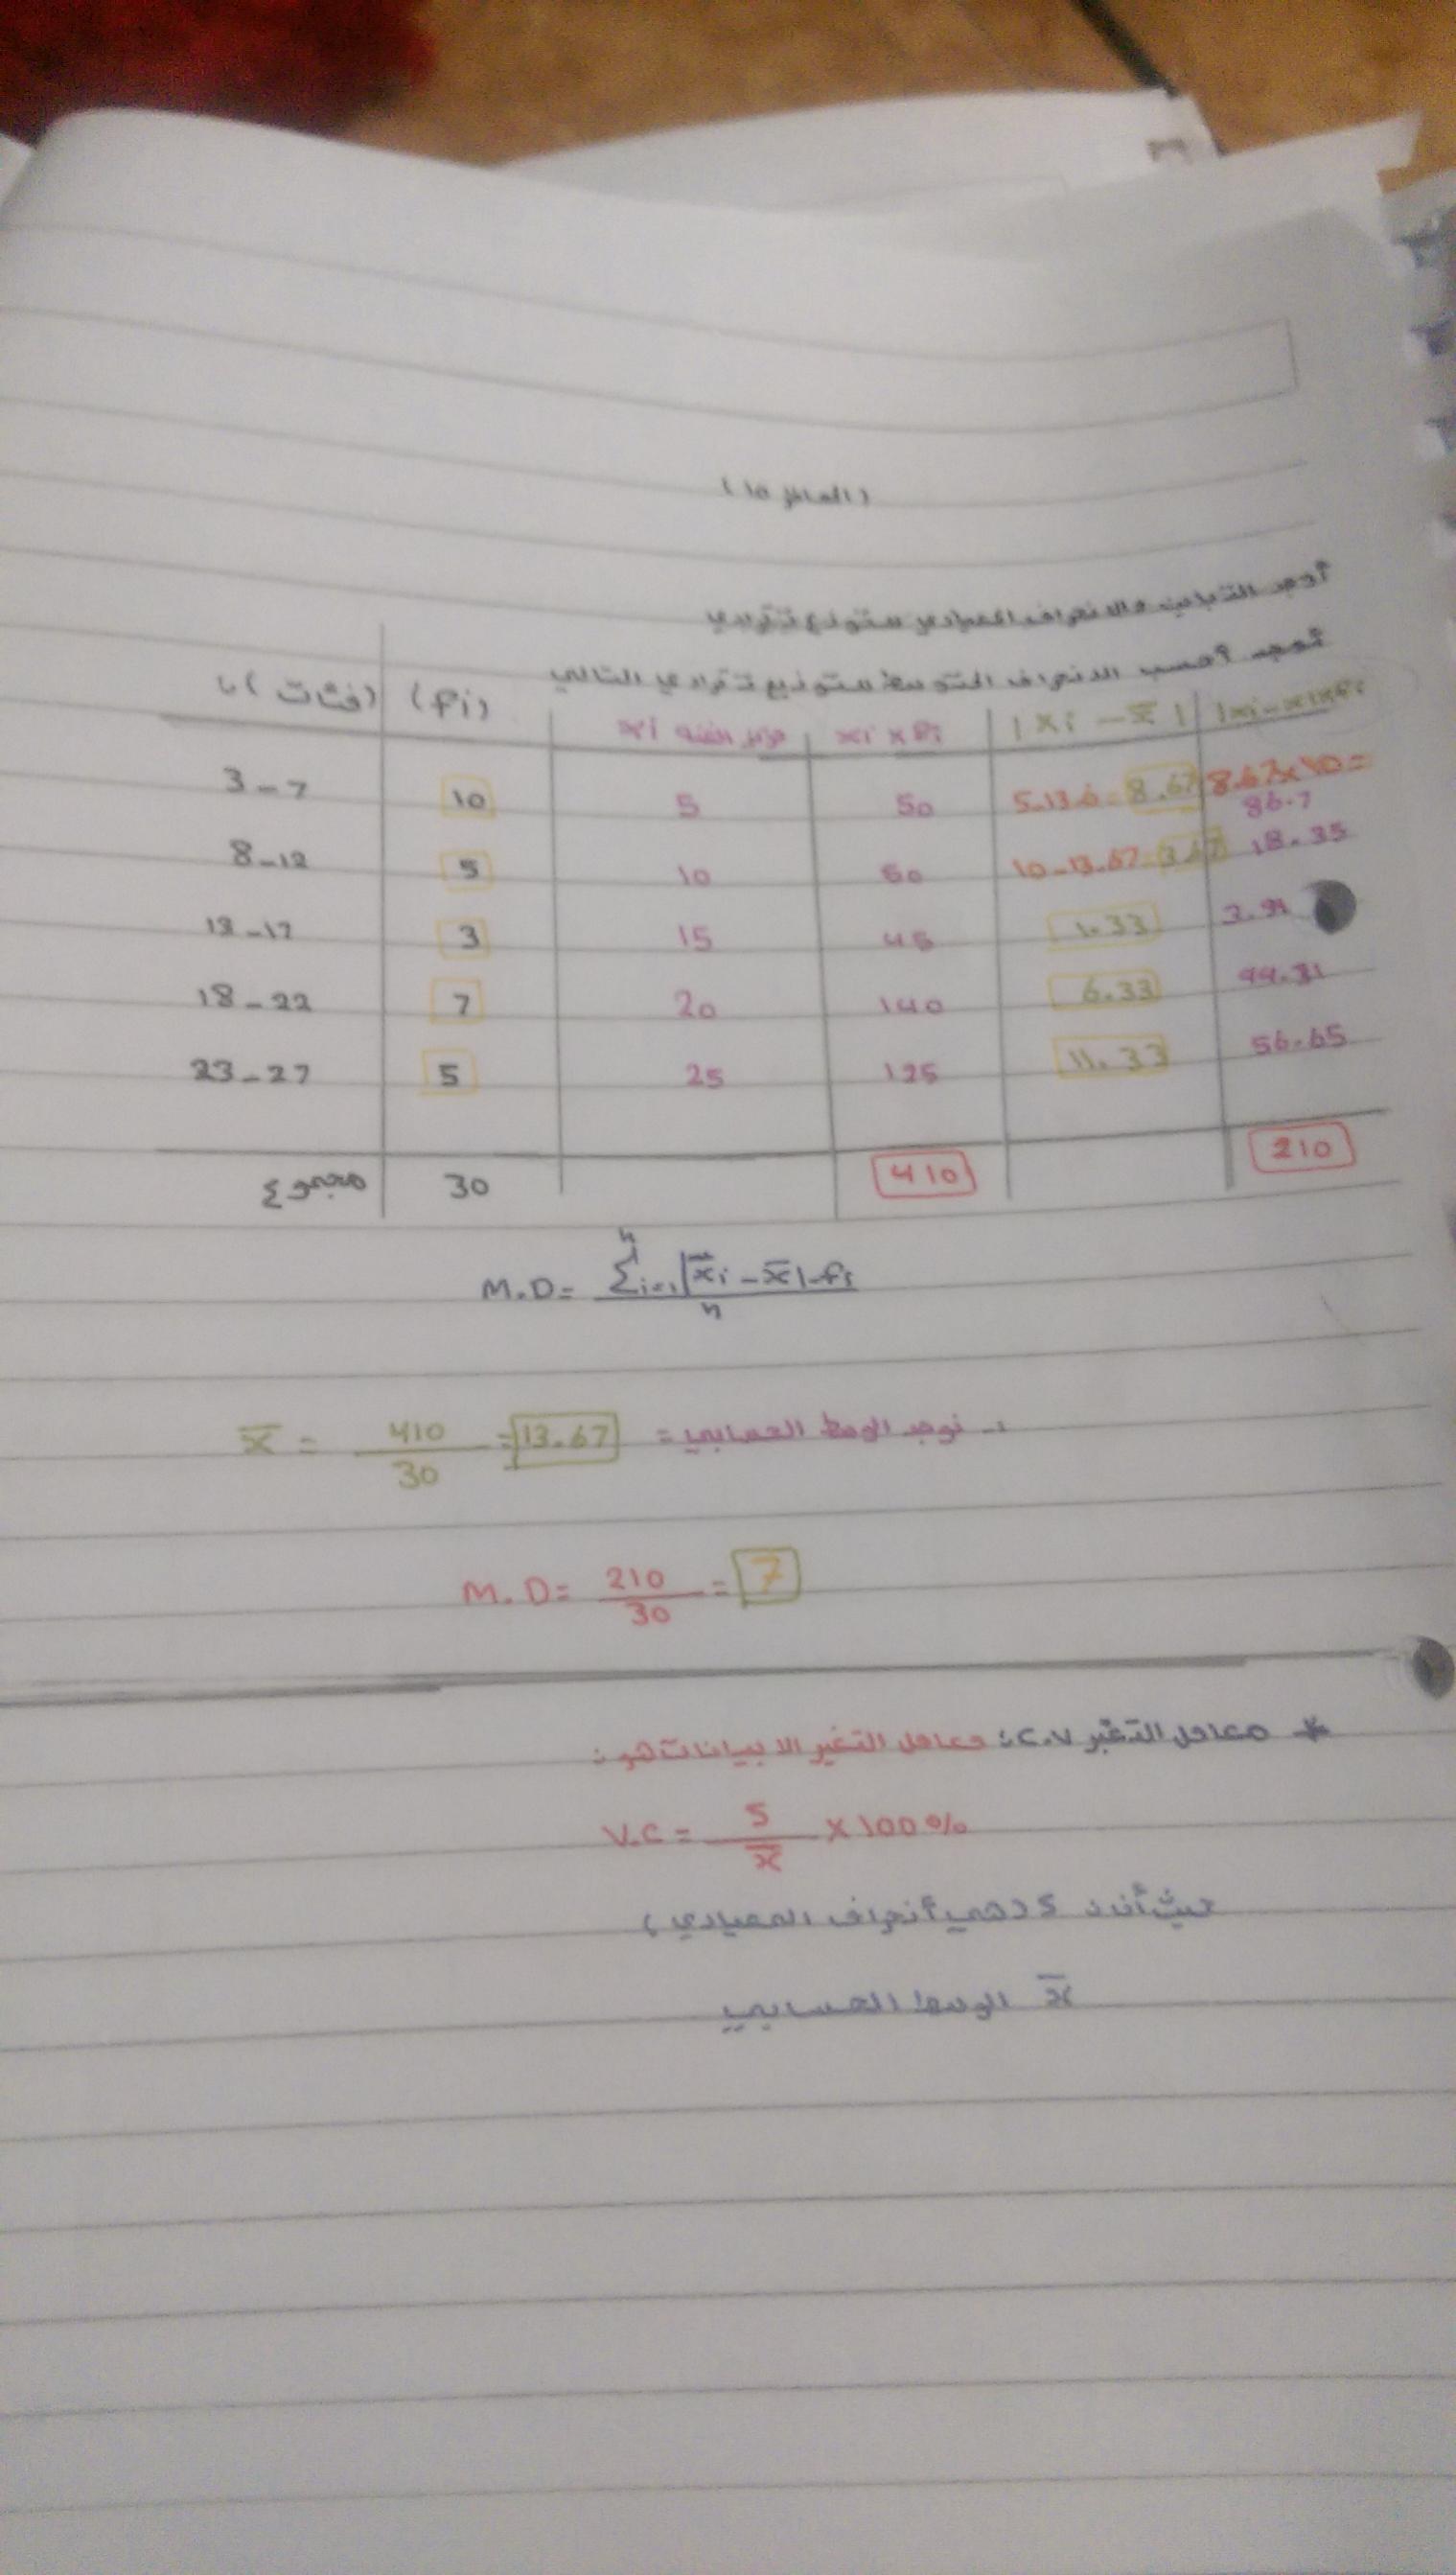 (المحاضر 10)
أوجد التباين والانحراف المعياري للتوزيع تكراري
أوجد أحسب الانحراف المتوسط للتوزيع تكراري التالي
(فئات) (fi) مركز الفئه xi xi x fi |xi - x̄| |xi - x| x fi
3-7 10 5 50 5-13.6= 8.67 8.67x10= 86.7
8-12 5 10 50 10-13.67= 3.67 18.35
13-17 3 15 45 1.33 3.99
18-22 7 20 140 6.33 44.31
23-27 5 25 125 11.33 56.65
مجموع 30 410 210
M.D= Σⁿi=1 |x̄i - x̄| fi / n
نوجد الوسط الحسابي = x̄ = 410/30 = 13.67
M.D= 210/30 = 7
* معامل التغير C.V: معامل التغير الا بيانات هو:
V.C = S/x̄ x 100%
حيث أن: S (هي أنحراف المعيادي)
x̄ الوسط الحسابي